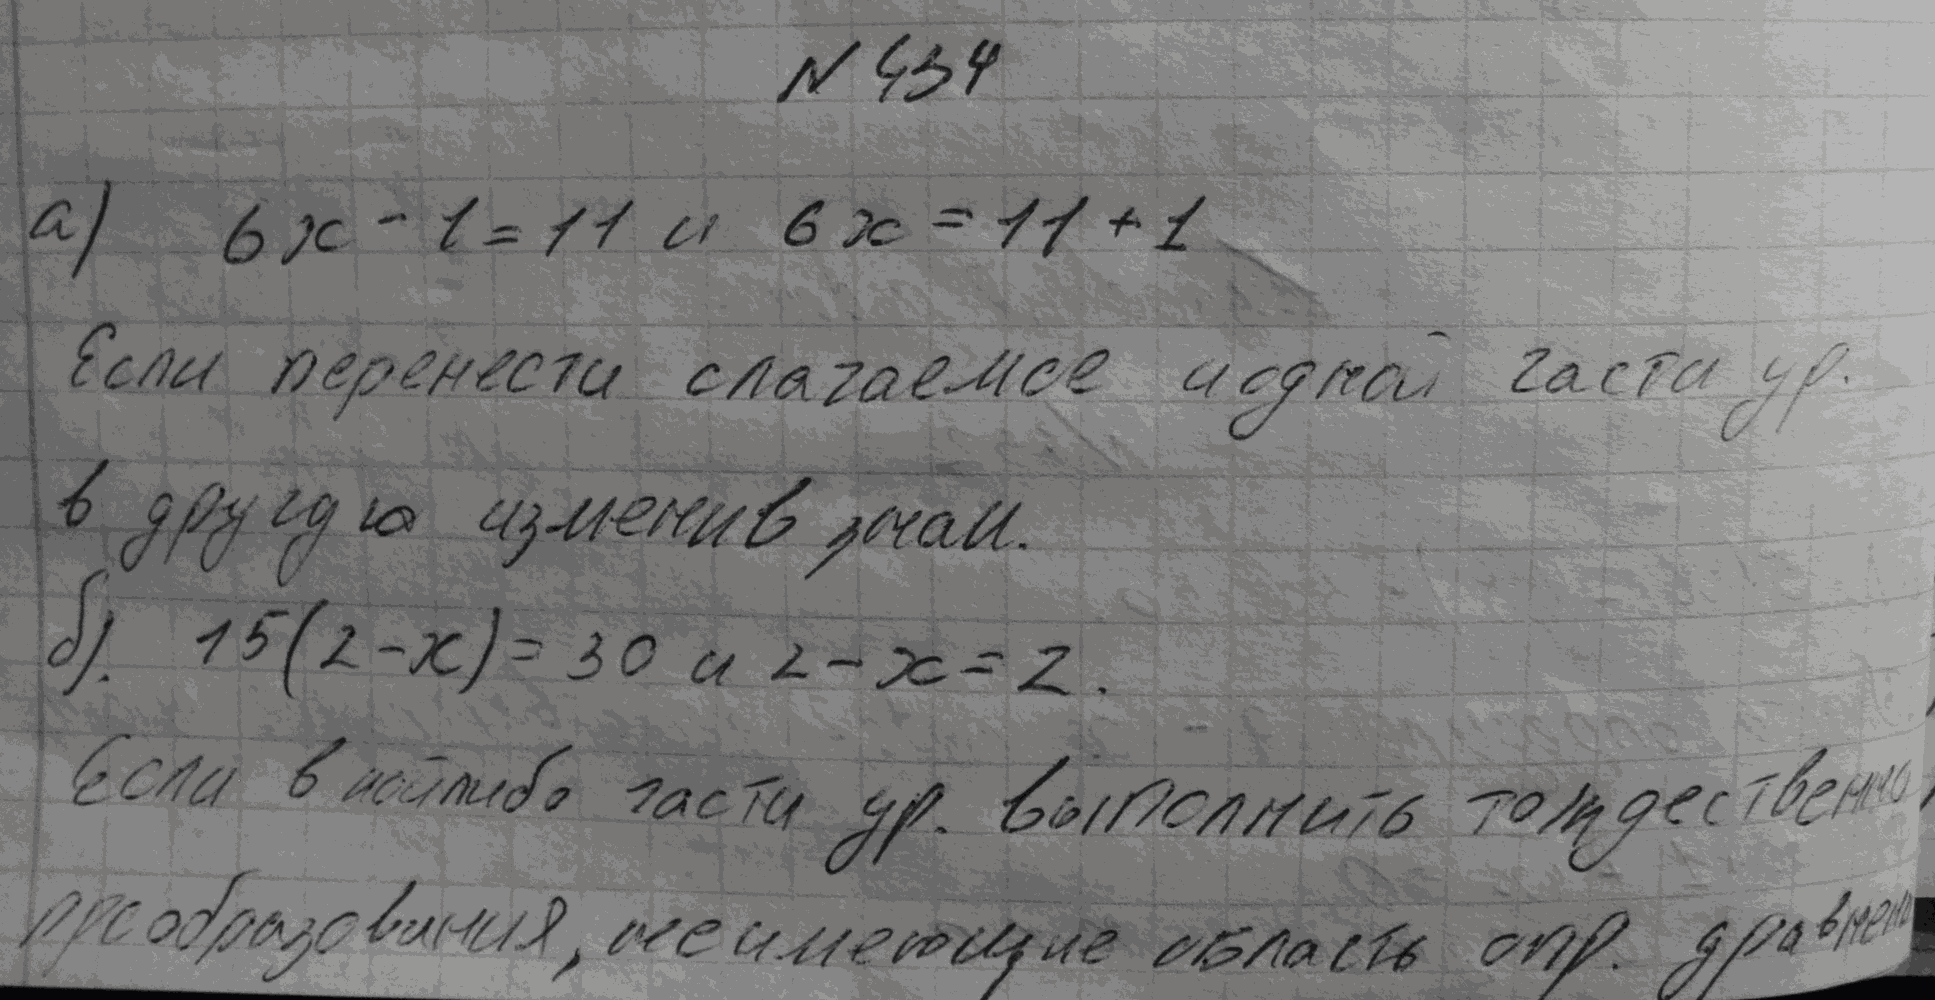 N 434
а) 6x - 1 = 11 и 6x = 11 + 1
Если перенести слагаемое и одной части ур.
в другую изменив знак.
б). 15(2-x) = 30 и 2-x = 2.
Если в койлибо части ур. выполнить тождественно
преобразования, не имеющие область опр. уравнени